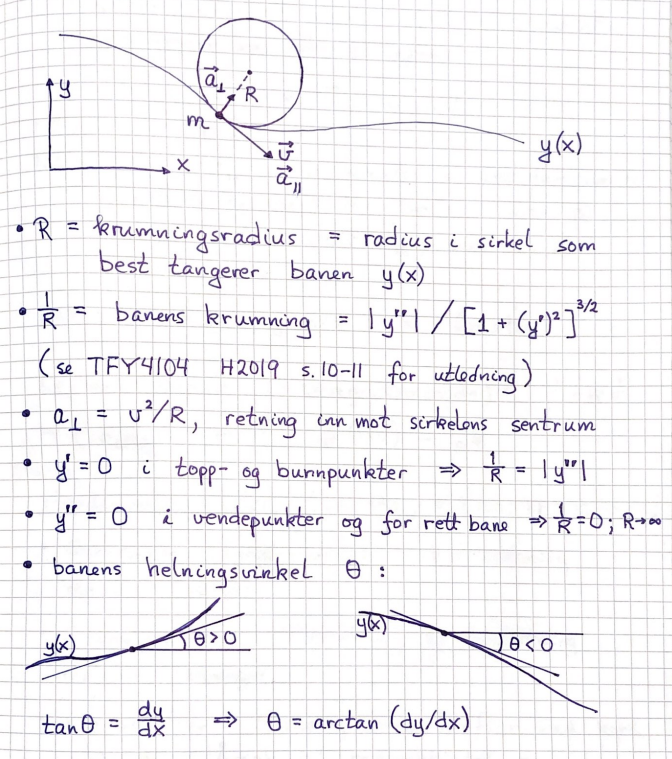 y
x
m
a⃗⊥
R
v⃗
a⃗∥
y(x)
• R = krumningsradius = radius i sirkel som
best tangerer banen y(x)
• 1/R = banens krumning = |y''| / [1 + (y')²]^3/2
(se TFY4104 H2019 s.10-11 for utledning)
• a⊥ = v²/R, retning inn mot sirkelens sentrum
• y' = 0 i topp- og bunnpunkter ⇒ 1/R = |y''|
• y'' = 0 i vendepunkter og for rett bane ⇒ 1/R = 0; R→∞
• banens helningsvinkel θ :
y(x)
θ > 0
y(x)
θ < 0
tanθ = dy/dx ⇒ θ = arctan (dy/dx)